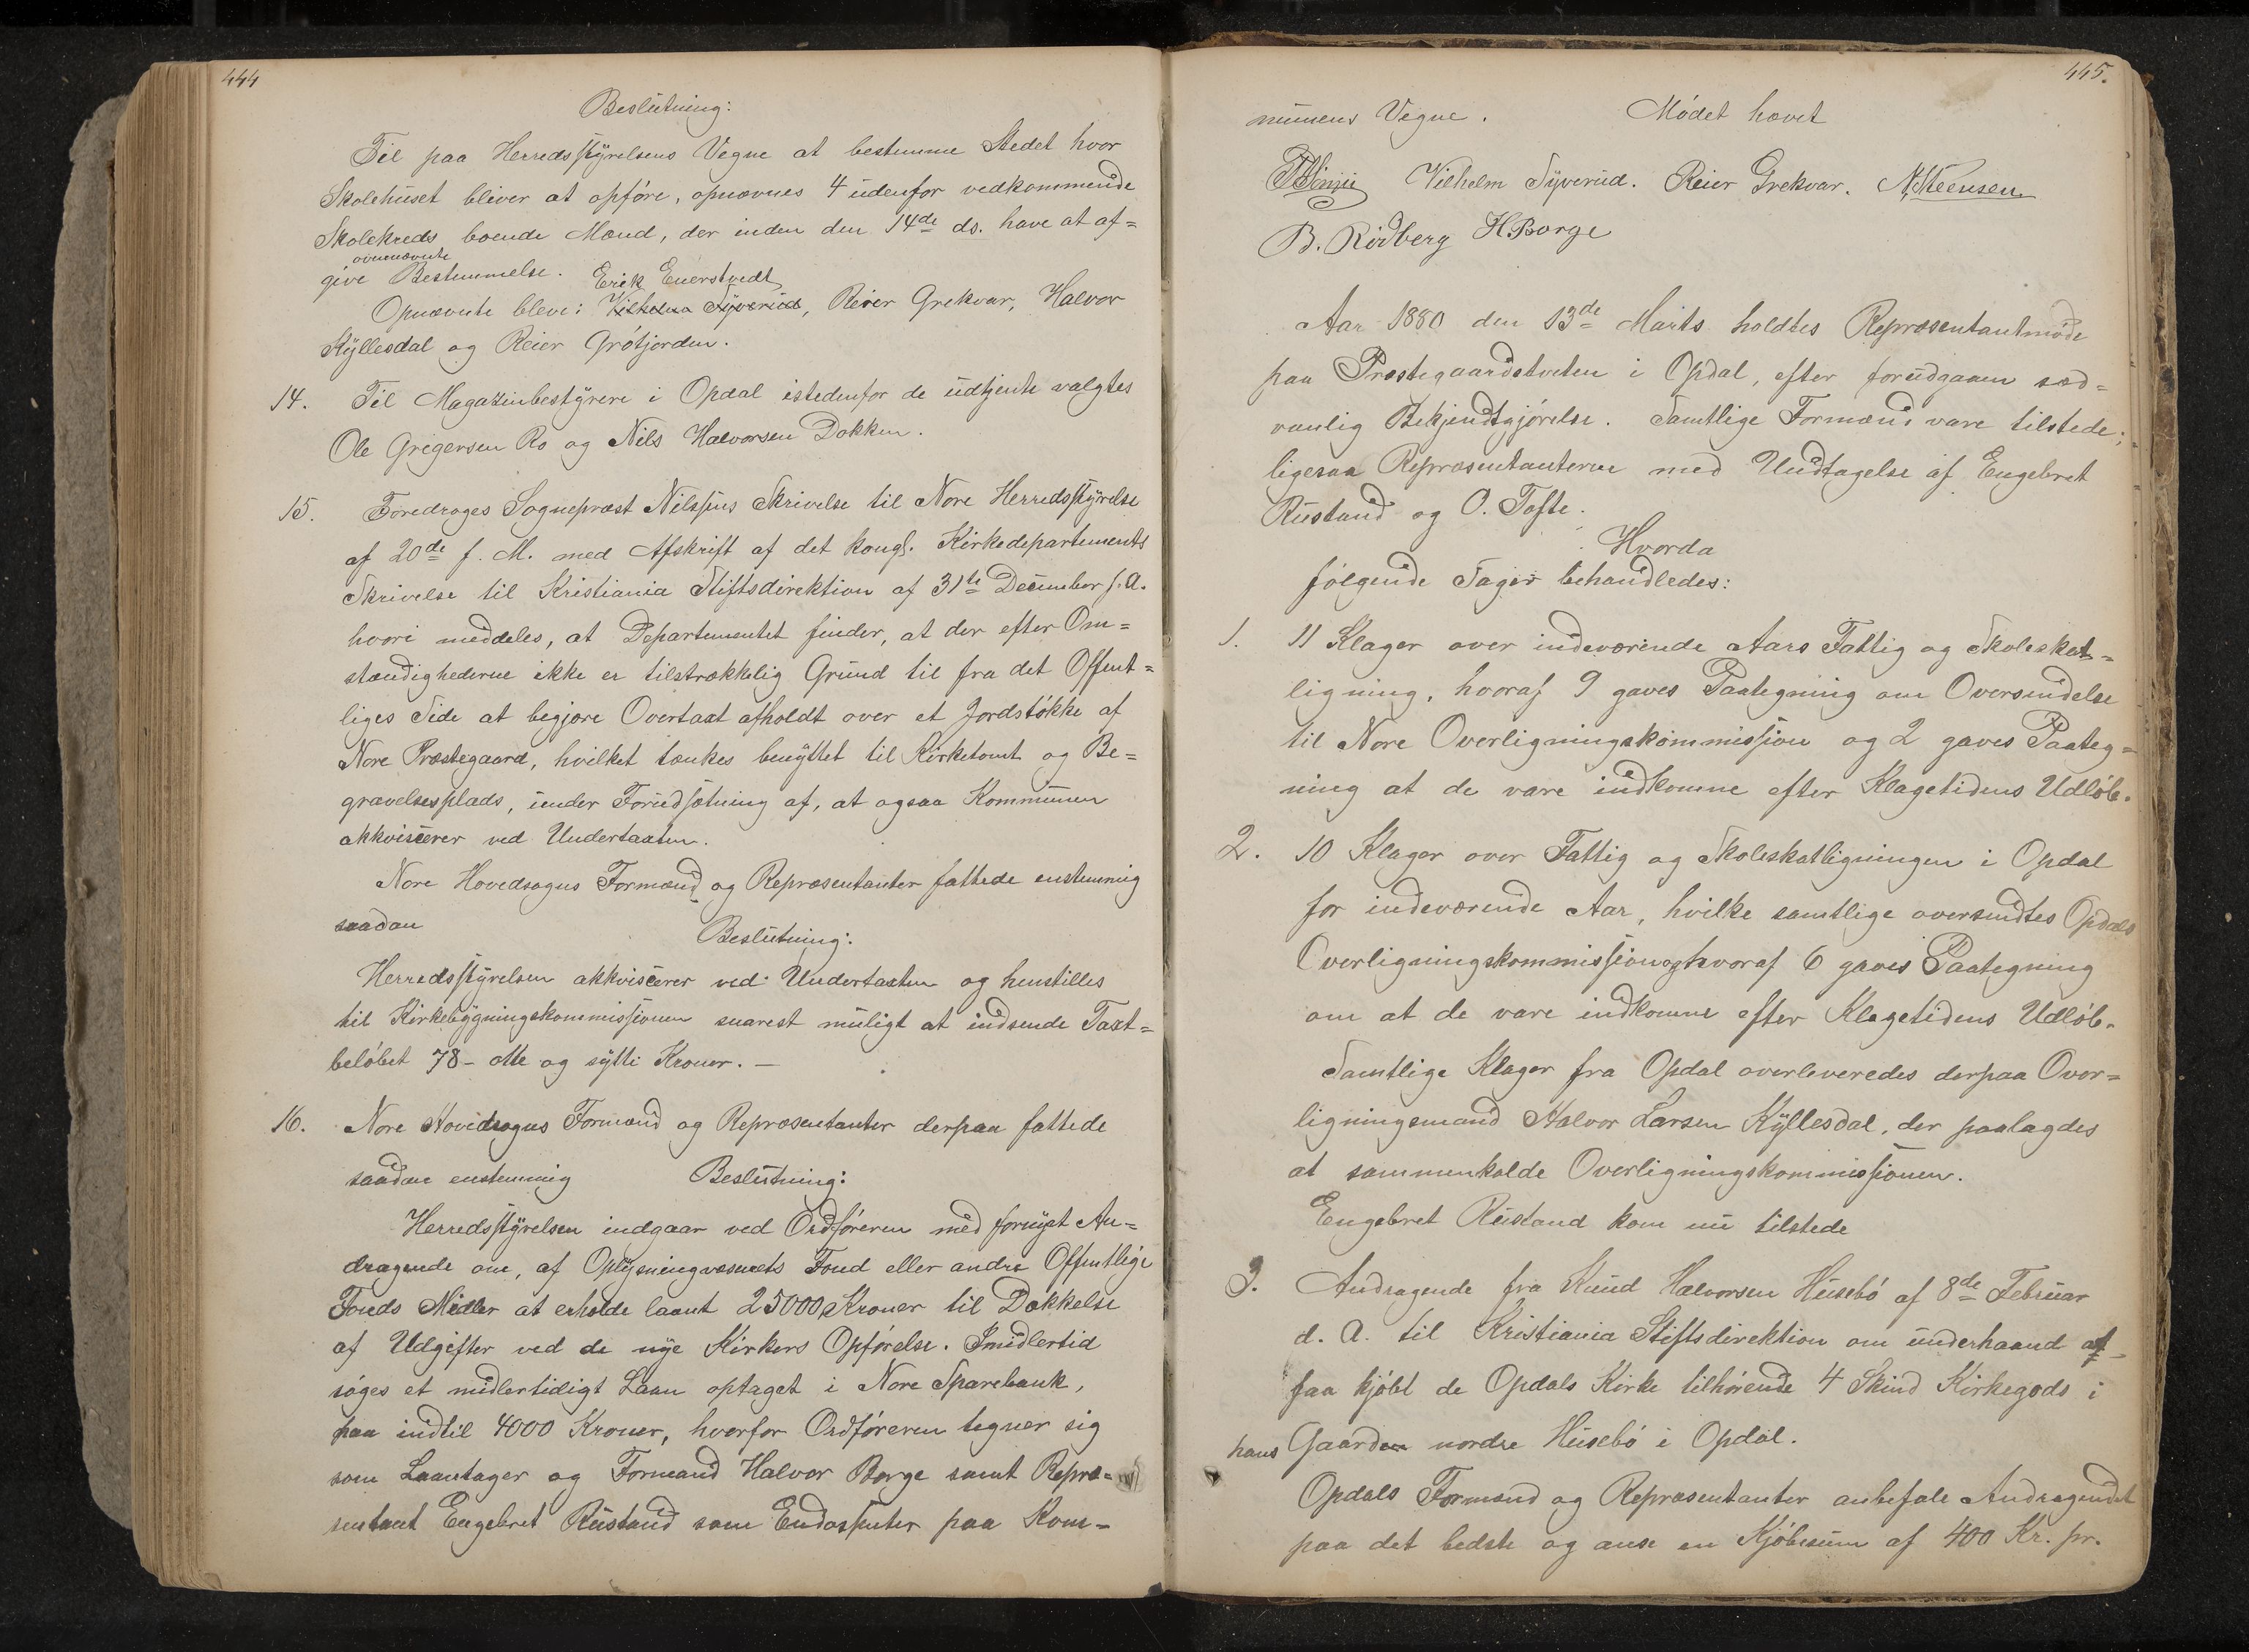 444
Beslutning:
Til paa Herredsstyrelsens Vegne at bestemme Stedet hvor
Skolehuset bliver at opføre, opnævnes 4 udenfor vedkommende
Skolekreds boende Mænd, der inden den 14de ds. have at af=
ovennævnte
give Bestemmelse. Erik Enerstvedt
Opnævnte bleve: Vilhelm Syverud, Reier Grekvar, Halvor
Kyllesdal og Reier Grøtjorden.
14. Til Magazinbestyrere i Opdal istedenfor de udtjente valgtes
Ole Gregersen Ro og Nils Halvorsen Dokken.
15. Foredroges Sognepræst Nilssens Skrivelse til Nore Herredsstyrelse
af 20de f. M. med Afskrift af det kongl. Kirkedepartements
Skrivelse til Kristiania Stiftsdirektion af 31te December f. A.
hvori meddeles, at Departementet finder, at der efter Om=
stændighederne ikke er tilstrækkelig Grund til fra det Offent=
liges Side at begjære Overtaxt afholdt over et Jordstøkke af
Nore Præstegaard, hvilket tænkes benyttet til Kirketomt og Be=
gravelsesplads, under Forudsætning af, at ogsaa Kommunen
akkviscerer ved Undertaxten.
Nore Hovedsogns Formænd og Repræsentanter fattede enstemmig
saadan
Beslutning:
Herredsstyrelsen akkviscerer ved Undertaxten og henstilles
til Kirkebygningskommissionen snarest muligt at indsende Taxt=
beløbet 78 - otte og sytti Kroner. —
16. Nore Hovedsogns Formænd og Repræsentanter derpaa fattede
saadan enstemmig Beslutning:
Herredsstyrelsen indgaar ved Ordføreren med fornyet An=
dragende om, af Oplysningvæsnets Fond eller andre Offentlige
Fonds Midler at erholde laant 25000 Kroner til Dækkelse
af Udgifter ved de nye Kirkers Opførelse. Imidlertid
søges et midlertidigt Laan optaget i Nore Sparebank,
paa indtil 4000 Kroner, hvorfor Ordføreren tegner sig
som Laantager og Formand Halvor Borge samt Repræ=
sentant Engebret Rustand som Endossenter paa Kom=
445.
munens Vegne. Mødet hævet
Vilhelm Syverud. Reier Grekvar. N. Steensen
B. Rødberg H. Borge
Aar 1880 den 13de Marts holdtes Repræsentantmøde
paa Præstegaardstveten i Opdal, efter forudgaaen sæd=
vanlig Bekjendtgjørelse. Samtlige Formænd vare tilstede;
ligesaa Repræsentanterne med Undtagelse af Engebret
Rustand og O. Tofte.
Hvorda
følgende Sager behandledes:
1. 11 Klager over indeværende Aars Fattig og Skoleskat=
ligning, hvoraf 9 gaves Paategning om Oversendelse
til Nore Overligningskommission og 2 gaves Paateg=
ning at de vare indkomne efter Klagetidens Udløb.
2. 10 Klager over Fattig og Skoleskatligningen i Opdal
for indeværende Aar, hvilke samtlige oversendtes Opdals
Overligningskommission og hvoraf 6 gaves Paategning
om at de vare indkomne efter Klagetidens Udløb.
Samtlige Klager fra Opdal overleveredes derpaa Over=
ligningsmand Halvor Larsen Kyllesdal, der paalagdes
at sammenkalde Overligningskommissionen.
Engebret Rustand kom nu tilstede
3. Andragende fra Knud Halvorsen Husebø af 8de Februar
d. A. til Kristiania Stiftsdirektion om underhaand at
faa kjøbt de Opdals Kirke tilhørende 4 Skind Kirkegods i
hans Gaarden nordre Husebø i Opdal.
Opdals Formænd og Repræsentanter anbefale Andragendet
paa det bedste og anse en Kjøbesum af 400 Kr. pr.